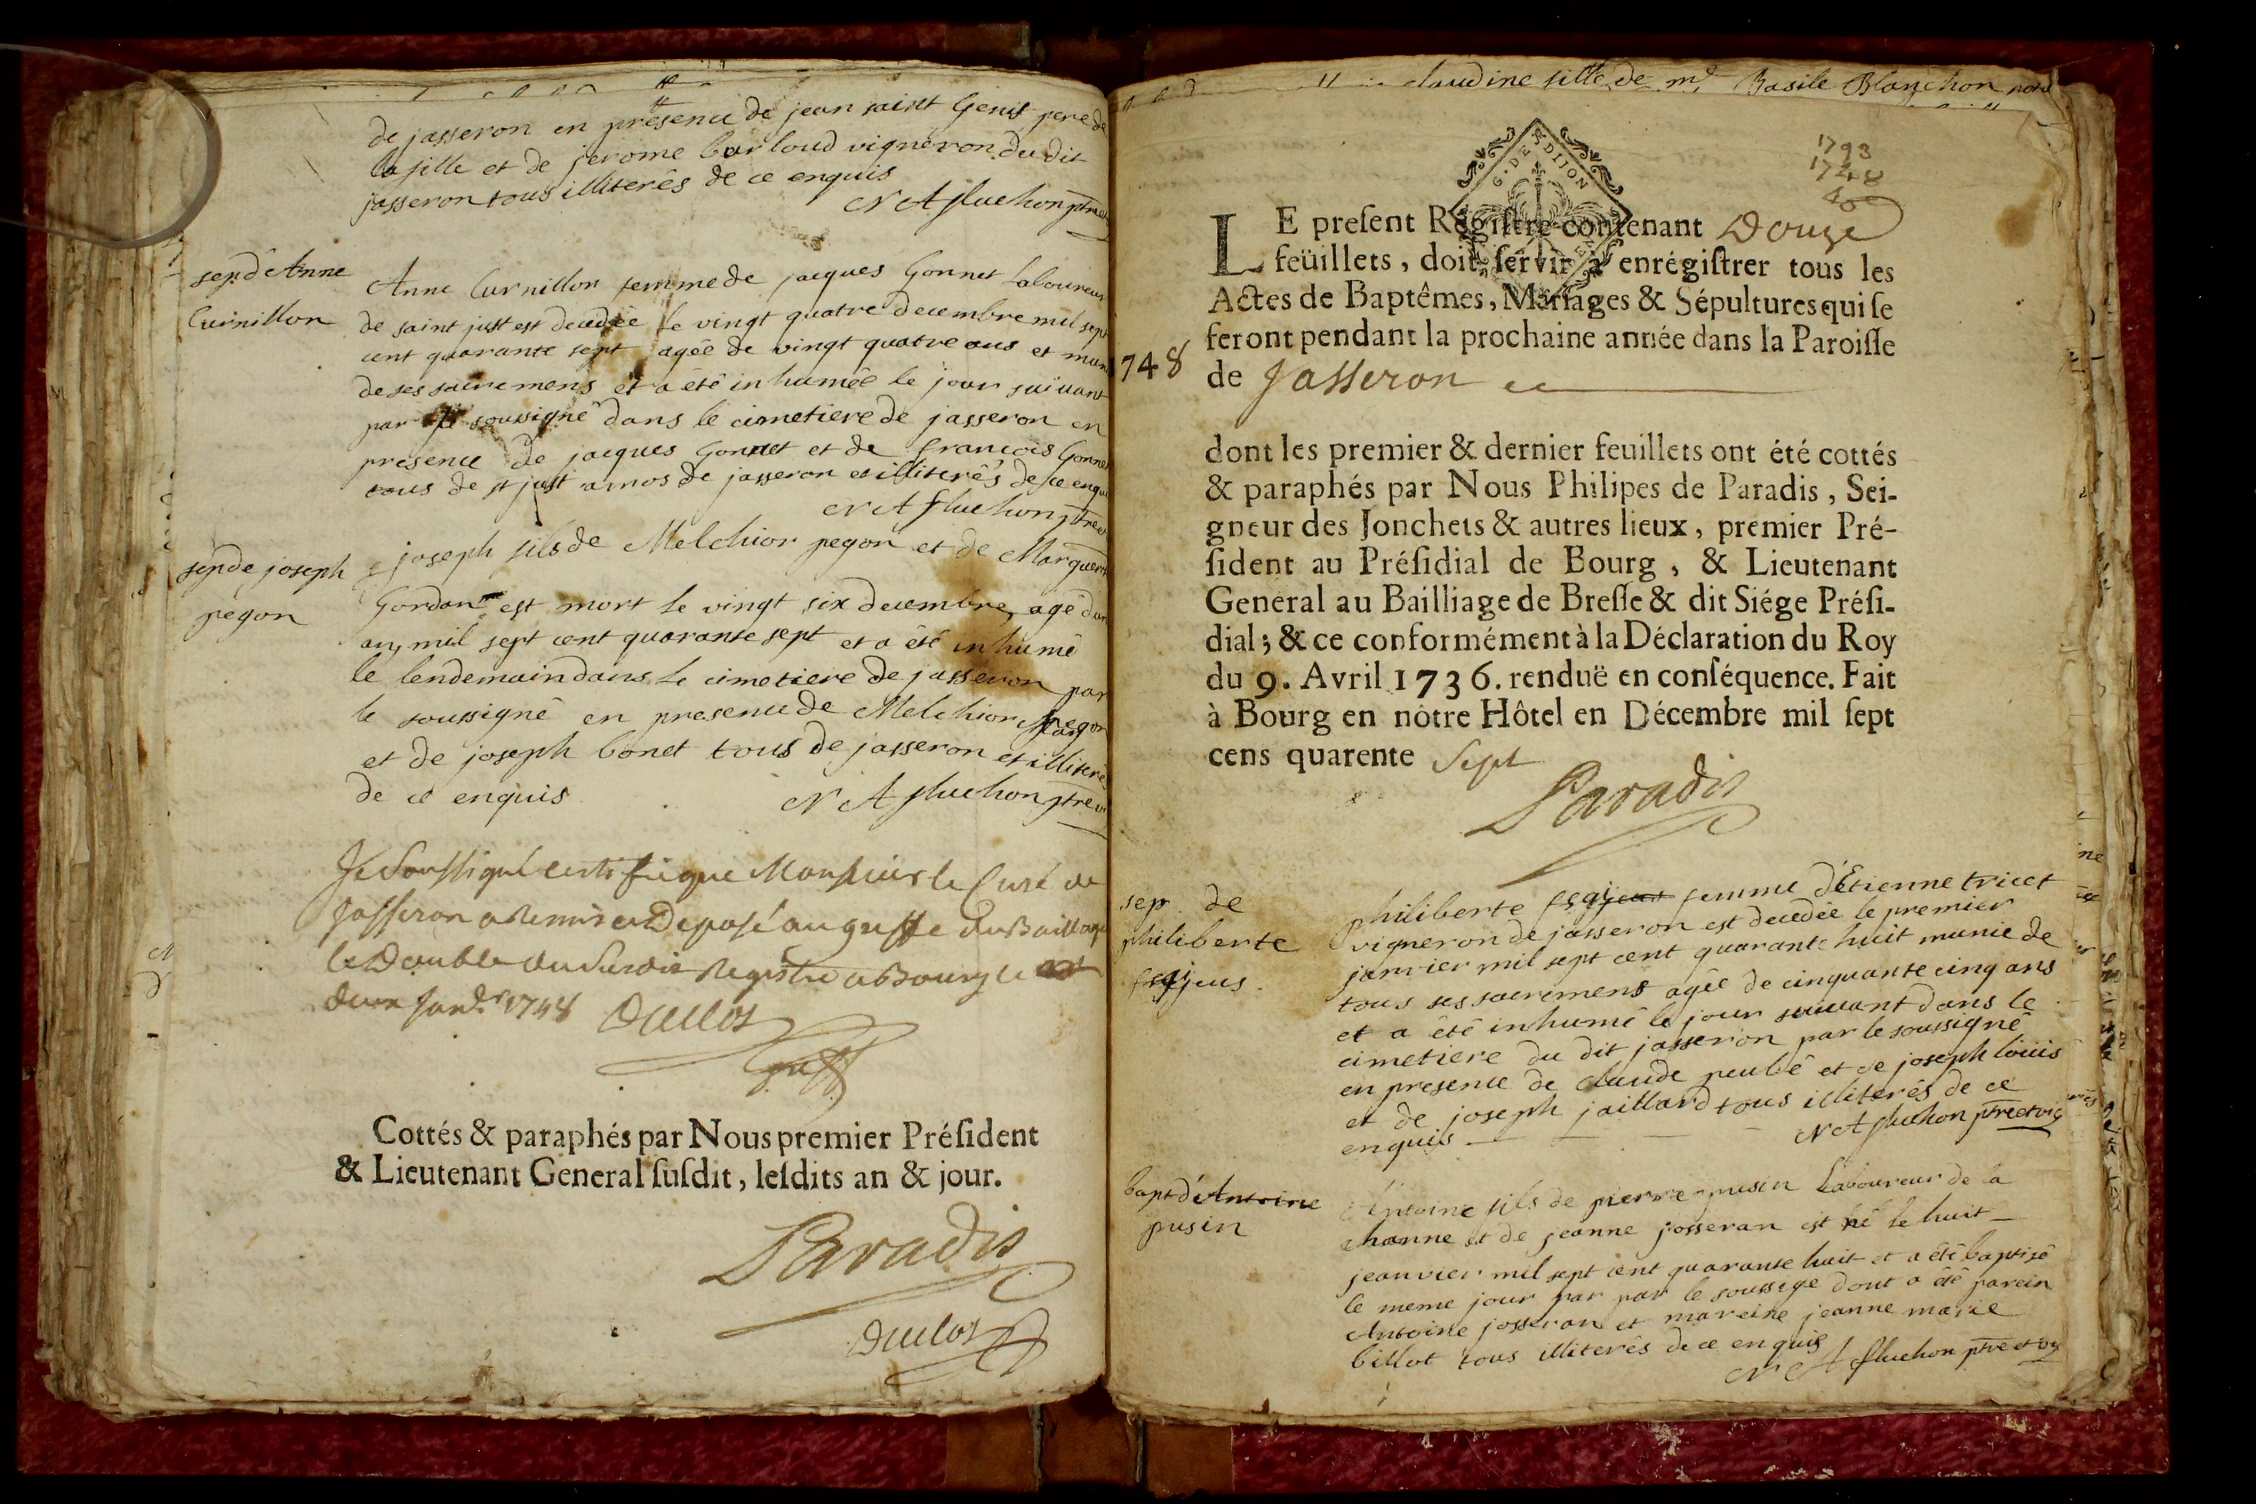 de jasseron en presence de jean saint Genis pere de
la fille et de jerome barloud vigneron du dit
jasseron tous illiterés de ce enquis
N A fluchon ptre
sep d'Anne
Curnillon
Anne Curnillon femme de jacques Gonnet Laboureur
de saint just est decedée le vingt quatre decembre mil sept
cent quarante sept agée de vingt quatre ans et munie
de ses sacremens et a été inhumée le jour suivant
par le soussigné dans le cimetiere de jasseron en
presence de jacques Gonnet et de francois Gonnet
tous de st just de jasseron et illiterés de ce enquis
N A fluchon ptre
sep de joseph
pegon
joseph fils de Melchior pegon et de Marguerite
Gordan est mort le vingt six decembre, agé d'un
an, mil sept cent quarante sept et a été inhumé
le lendemain dans le cimetiere de jasseron par
le soussigné en presence de Melchior pegon
et de joseph bonet tous de jasseron et illiterés
de ce enquis
N A fluchon ptre
Je soussigné certiffie que Monsieur le Curé de
Jasseron a Remis et Deposé au greffe du Baillage
le Double du Registre a Bourg le
Janv. 1748 Duclos
greff
Cottés & paraphés par Nous premier Présìdent
& Lieutenant General susdit, lesdits an & jour.
Paradis
Duclos
claudine fille de mr Basile Blanchon
1793
1748
G. DE DIJON
LE present Registre contenant Douze
feüillets, doit servir à enrégistrer tous les
Actes de Baptêmes, Mariages & Sépultures qui se
feront pendant la prochaine année dans la Paroisse
1748
de Jasseron
dont les premier & dernier feuillets ont été cottés
& paraphés par Nous Philipes de Paradis, Sei-
gneur des Jonchets & autres lieux, premier Pré-
sident au Présidial de Bourg, & Lieutenant
General au Bailliage de Bresse & dit Siége Prési-
dial; & ce conformément à la Déclaration du Roy
du 9. Avril 1736. renduë en conséquence. Fait
à Bourg en nôtre Hôtel en Décembre mil sept
cens quarente Sept
Paradis
sep. de
philiberte
philiberte femme d'Etienne tricet
vigneron de jasseron est decedée le premier
janvier mil sept cent quarante huit munie de
tous ses sacremens agée de cinquante cinq ans
et a été inhumé le jour suivant dans le
cimetiere du dit jasseron par le soussigné
en presence de claude peulé et de joseph loüis
et de joseph jaillard tous illiterés de ce
enquis
N A fluchon ptre et vic
bapt d'Antoine
pusin
Antoine fils de pierre pusin Laboureur de la
channe et de jeanne josseran est né le huit
jeanvier mil sept cent quarante huit et a été baptisé
le meme jour par par le soussigé dont a été parein
Antoine josseran et mareine jeanne marie
billot tous illiterés de ce enquis
N A fluchon ptre et vic